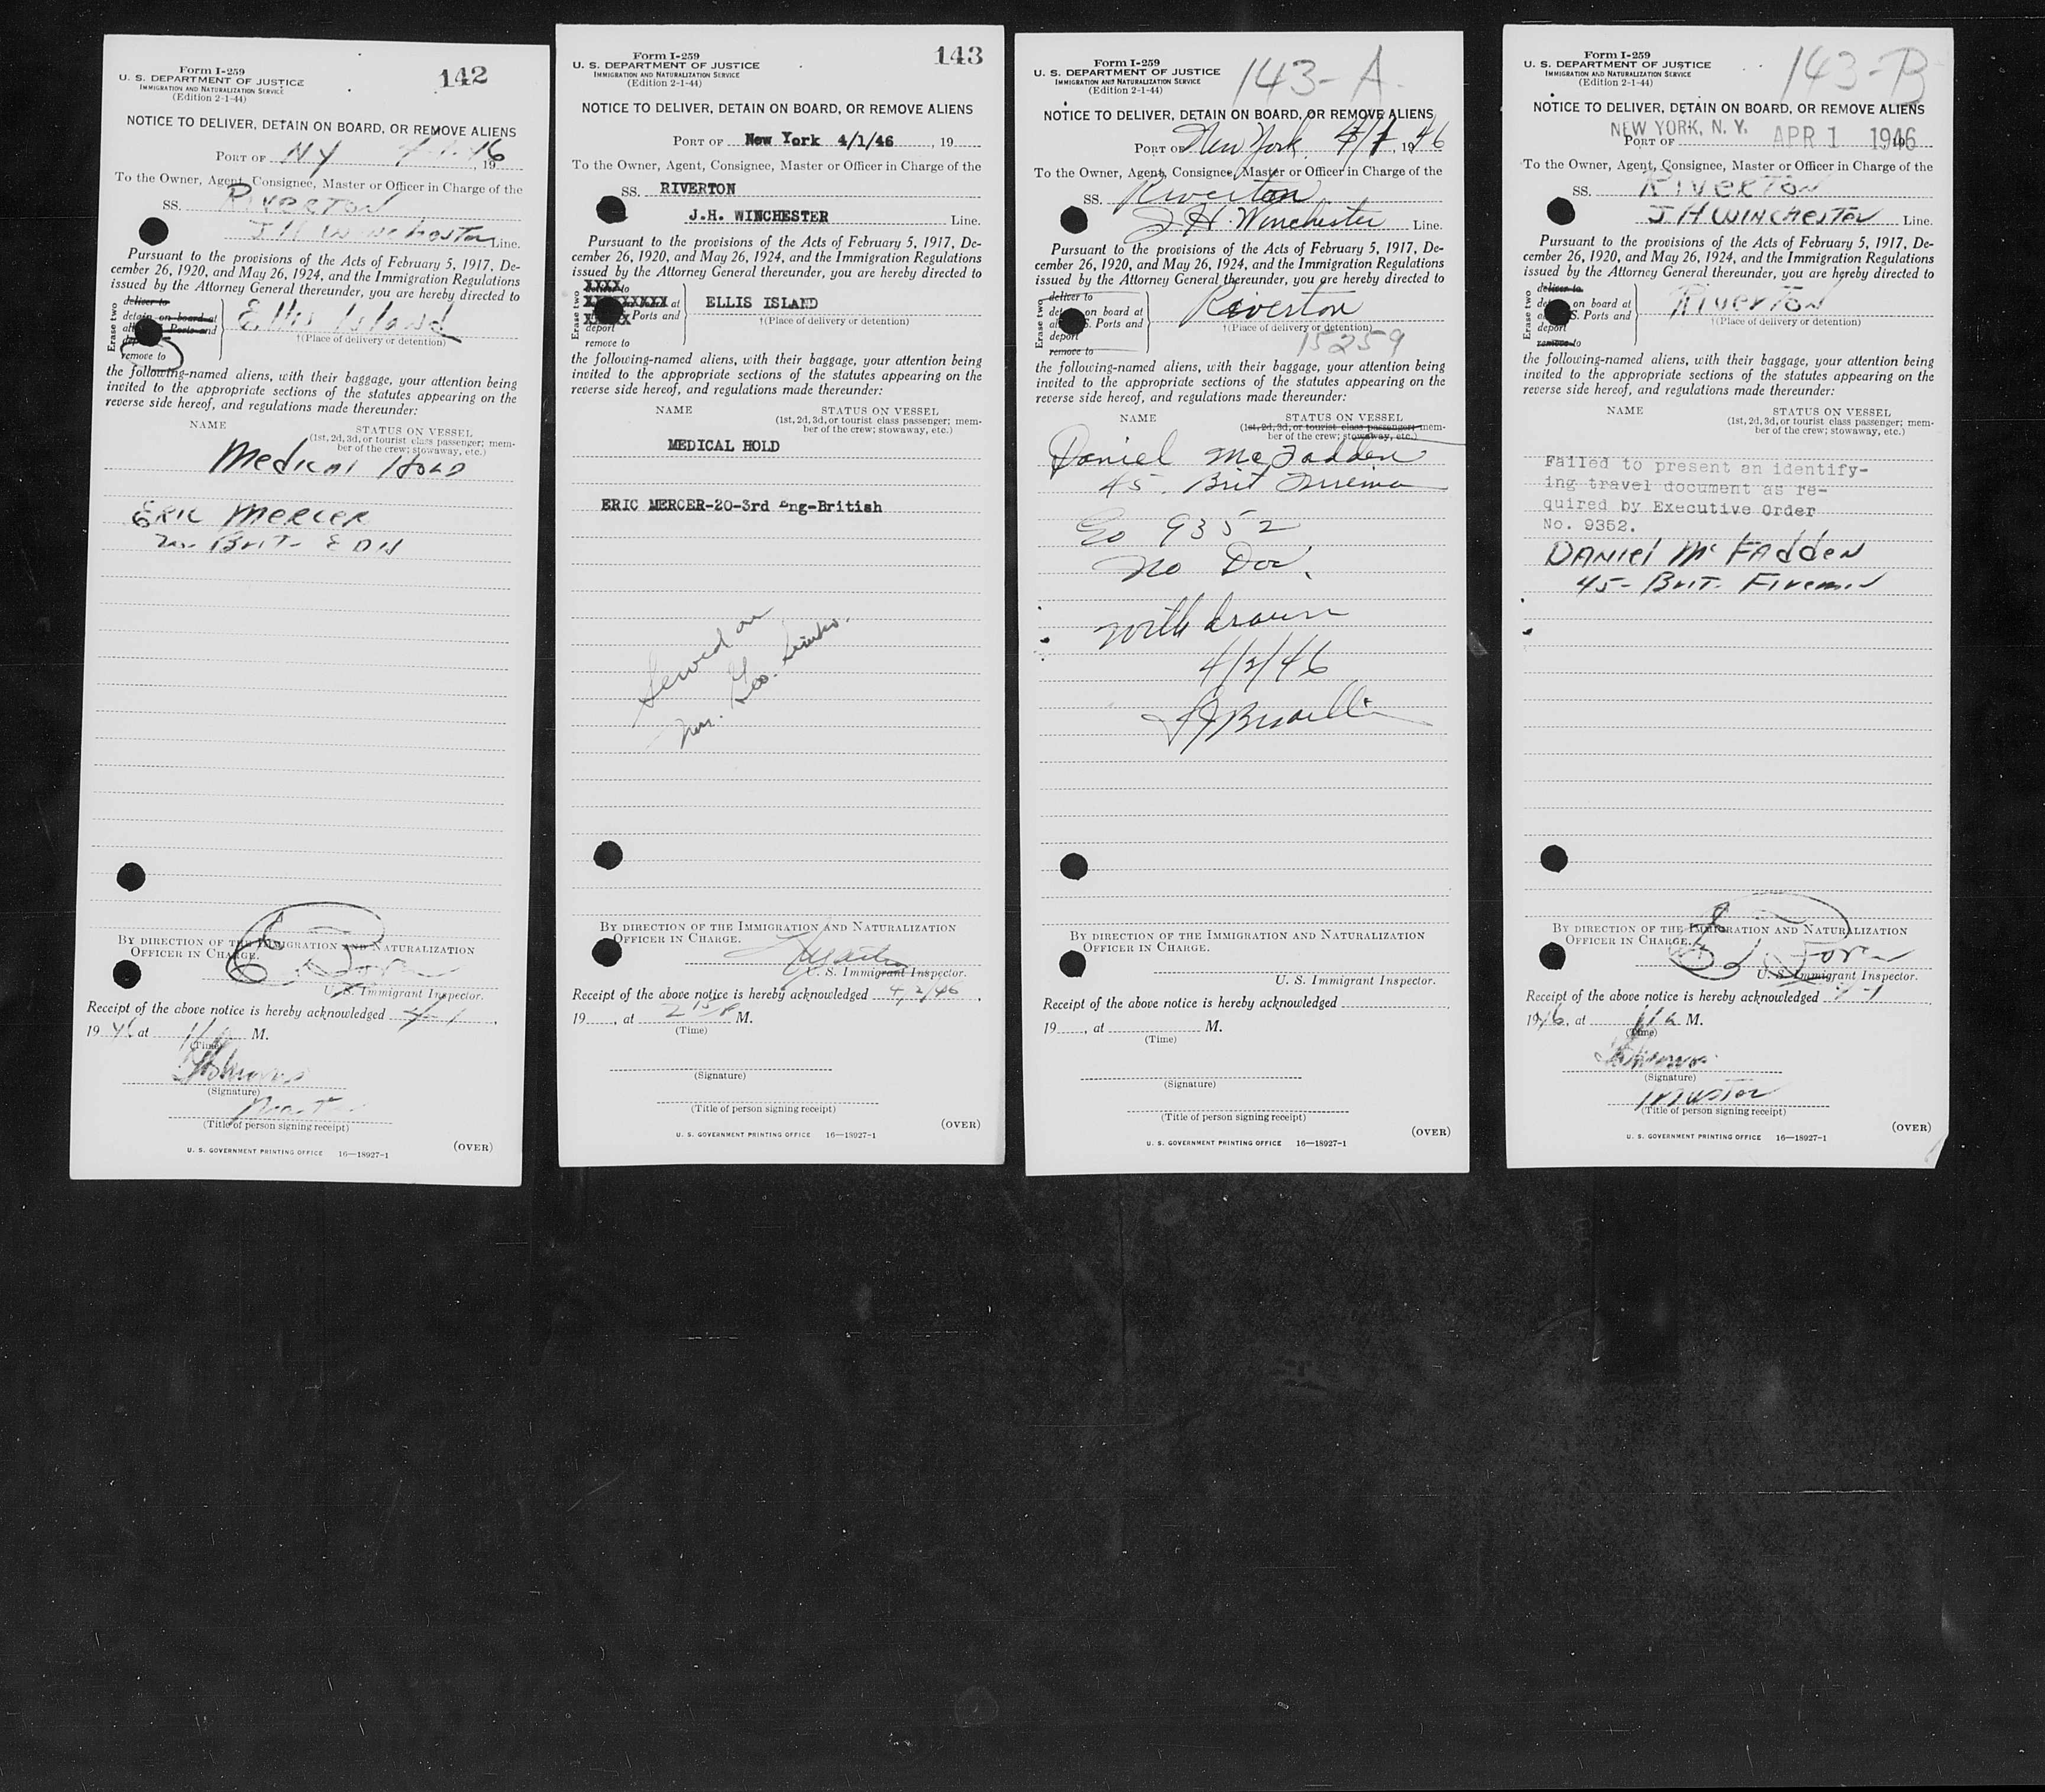 Form I-259
U. S. DEPARTMENT OF JUSTICE
IMMIGRATION AND NATURALIZATION SERVICE
(Edition 2-1-44)
142
NOTICE TO DELIVER, DETAIN ON BOARD, OR REMOVE ALIENS
PORT OF NY 4-1-46, 19
To the Owner, Agent, Consignee, Master or Officer in Charge of the
SS. RIVERTON
J H WINCHESTER Line.
Pursuant to the provisions of the Acts of February 5, 1917, De-
cember 26, 1920, and May 26, 1924, and the Immigration Regulations
issued by the Attorney General thereunder, you are hereby directed to
Erase two
deliver to
detain on board at
Ports and
remove to
Ellis Island
†(Place of delivery or detention)
the following-named aliens, with their baggage, your attention being
invited to the appropriate sections of the statutes appearing on the
reverse side hereof, and regulations made thereunder:
NAME
STATUS ON VESSEL
(1st, 2d, 3d, or tourist class passenger; mem-
ber of the crew; stowaway, etc.)
Medical Hold
ERIC MERCER
BRIT-
BY DIRECTION OF THE IMMIGRATION AND NATURALIZATION
OFFICER IN CHARGE.
U. S. Immigrant Inspector.
Receipt of the above notice is hereby acknowledged 4-1,
1946 at M.
(Time)
(Signature)
Master
(Title of person signing receipt)
(OVER)
U. S. GOVERNMENT PRINTING OFFICE 16—18927-1
Form I-259
U. S. DEPARTMENT OF JUSTICE
IMMIGRATION AND NATURALIZATION SERVICE
(Edition 2-1-44)
143
NOTICE TO DELIVER, DETAIN ON BOARD, OR REMOVE ALIENS
PORT OF New York 4/1/46, 19
To the Owner, Agent, Consignee, Master or Officer in Charge of the
SS. RIVERTON
J.H. WINCHESTER Line.
Pursuant to the provisions of the Acts of February 5, 1917, De-
cember 26, 1920, and May 26, 1924, and the Immigration Regulations
issued by the Attorney General thereunder, you are hereby directed to
Erase two
deliver to
at
Ports and
deport
remove to
ELLIS ISLAND
†(Place of delivery or detention)
the following-named aliens, with their baggage, your attention being
invited to the appropriate sections of the statutes appearing on the
reverse side hereof, and regulations made thereunder:
NAME
STATUS ON VESSEL
(1st, 2d, 3d, or tourist class passenger; mem-
ber of the crew; stowaway, etc.)
MEDICAL HOLD
ERIC MERCER-20-3rd Eng-British
Served on
Mr. Geo.
BY DIRECTION OF THE IMMIGRATION AND NATURALIZATION
OFFICER IN CHARGE.
U. S. Immigrant Inspector.
Receipt of the above notice is hereby acknowledged 4/2/46,
19, at 2 15 P M.
(Time)
(Signature)
(Title of person signing receipt)
(OVER)
U. S. GOVERNMENT PRINTING OFFICE 16—18927-1
Form I-259
U. S. DEPARTMENT OF JUSTICE
IMMIGRATION AND NATURALIZATION SERVICE
(Edition 2-1-44)
143-A
NOTICE TO DELIVER, DETAIN ON BOARD, OR REMOVE ALIENS
PORT OF New York, 4/1, 1946
To the Owner, Agent, Consignee, Master or Officer in Charge of the
SS. Riverton
J. H. Winchester Line.
Pursuant to the provisions of the Acts of February 5, 1917, De-
cember 26, 1920, and May 26, 1924, and the Immigration Regulations
issued by the Attorney General thereunder, you are hereby directed to
Erase two
deliver to
on board at
S. Ports and
deport
remove to
Riverton
†(Place of delivery or detention)
15259
the following-named aliens, with their baggage, your attention being
invited to the appropriate sections of the statutes appearing on the
reverse side hereof, and regulations made thereunder:
NAME
STATUS ON VESSEL
(1st, 2d, 3d, or tourist class passenger; mem-
ber of the crew; stowaway, etc.)
Daniel McFadden
45. Brit Fireman
Eo 9352
No Doc.
withdrawn
4/2/46
BY DIRECTION OF THE IMMIGRATION AND NATURALIZATION
OFFICER IN CHARGE.
U. S. Immigrant Inspector.
Receipt of the above notice is hereby acknowledged
19, at M.
(Time)
(Signature)
(Title of person signing receipt)
(OVER)
U. S. GOVERNMENT PRINTING OFFICE 16—18927-1
Form I-259
U. S. DEPARTMENT OF JUSTICE
IMMIGRATION AND NATURALIZATION SERVICE
(Edition 2-1-44)
143-B
NOTICE TO DELIVER, DETAIN ON BOARD, OR REMOVE ALIENS
NEW YORK, N. Y. APR 1 1946
PORT OF
To the Owner, Agent, Consignee, Master or Officer in Charge of the
SS. RIVERTON
J H WINCHESTER Line.
Pursuant to the provisions of the Acts of February 5, 1917, De-
cember 26, 1920, and May 26, 1924, and the Immigration Regulations
issued by the Attorney General thereunder, you are hereby directed to
Erase two
deliver to
on board at
S. Ports and
deport
remove to
Riverton
†(Place of delivery or detention)
the following-named aliens, with their baggage, your attention being
invited to the appropriate sections of the statutes appearing on the
reverse side hereof, and regulations made thereunder:
NAME
STATUS ON VESSEL
(1st, 2d, 3d, or tourist class passenger; mem-
ber of the crew; stowaway, etc.)
Failed to present an identify-
ing travel document as re-
quired by Executive Order
No. 9352.
DANIEL McFADDEN
45- BRIT. Fireman
BY DIRECTION OF THE IMMIGRATION AND NATURALIZATION
OFFICER IN CHARGE.
U. S. Immigrant Inspector.
Receipt of the above notice is hereby acknowledged 4-1
1946, at 11 a M.
(Time)
(Signature)
Master
(Title of person signing receipt)
(OVER)
U. S. GOVERNMENT PRINTING OFFICE 16—18927-1